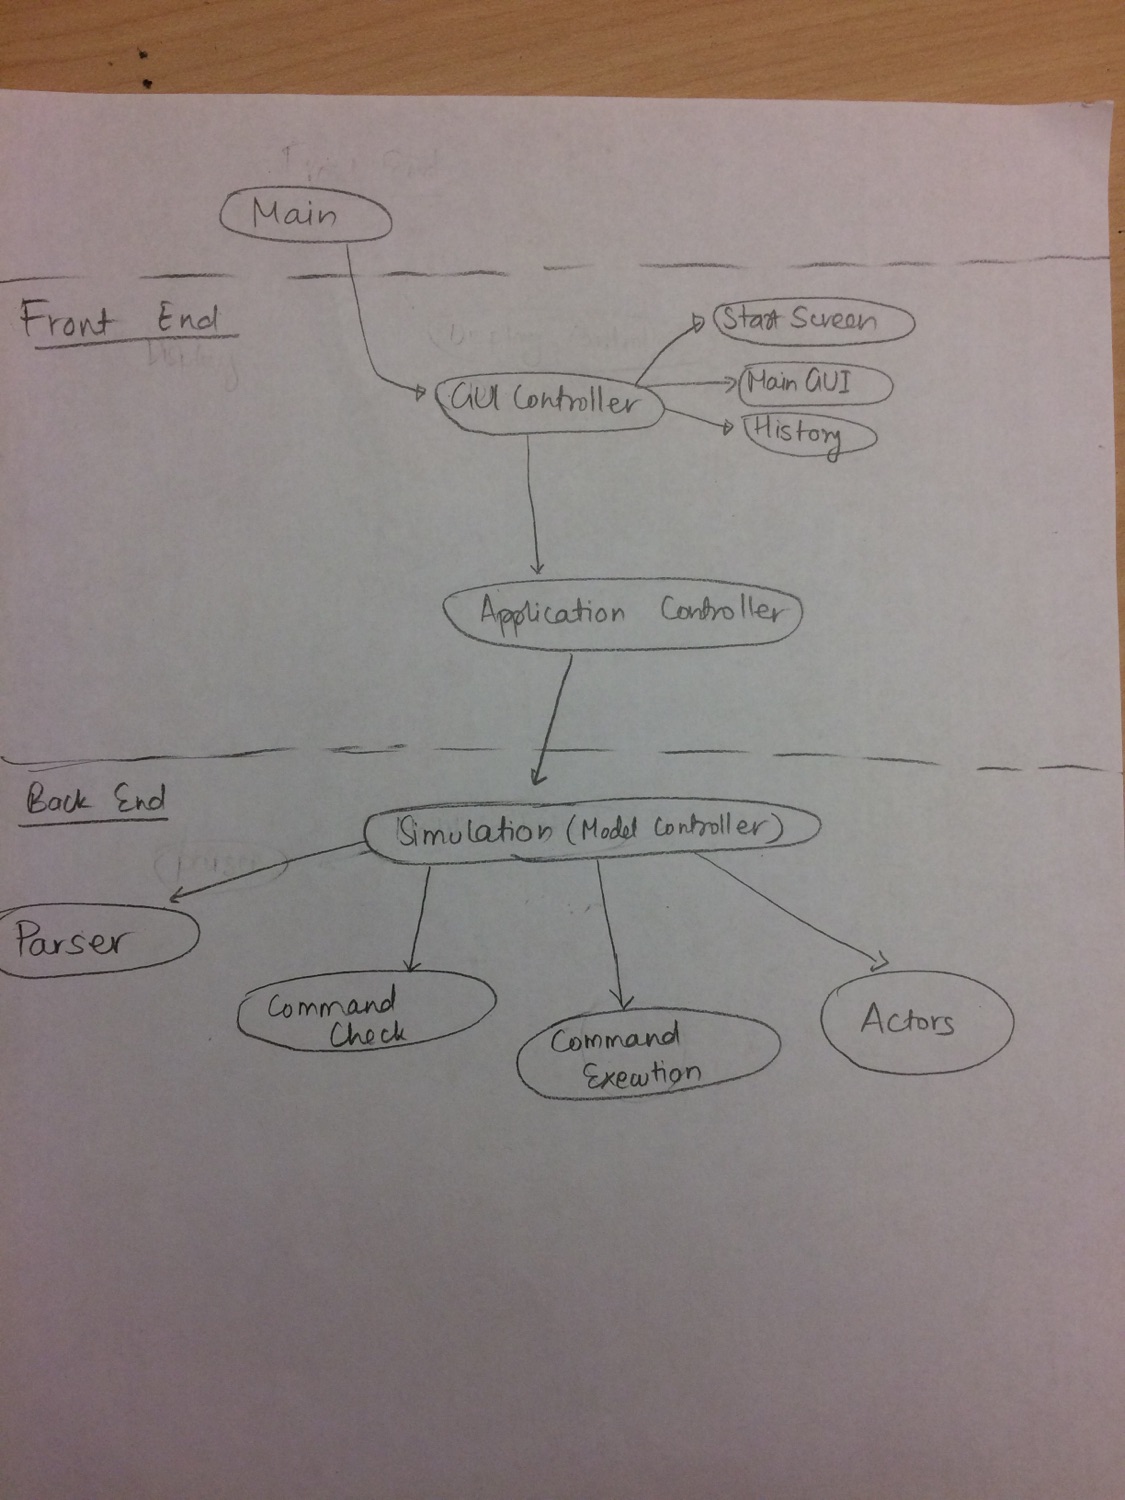 Main
Front End
Start Screen
Main GUI
GUI Controller
History
Application Controller
Back End
Simulation (Model Controller)
Parser
Command
Check
Command
Execution
Actors